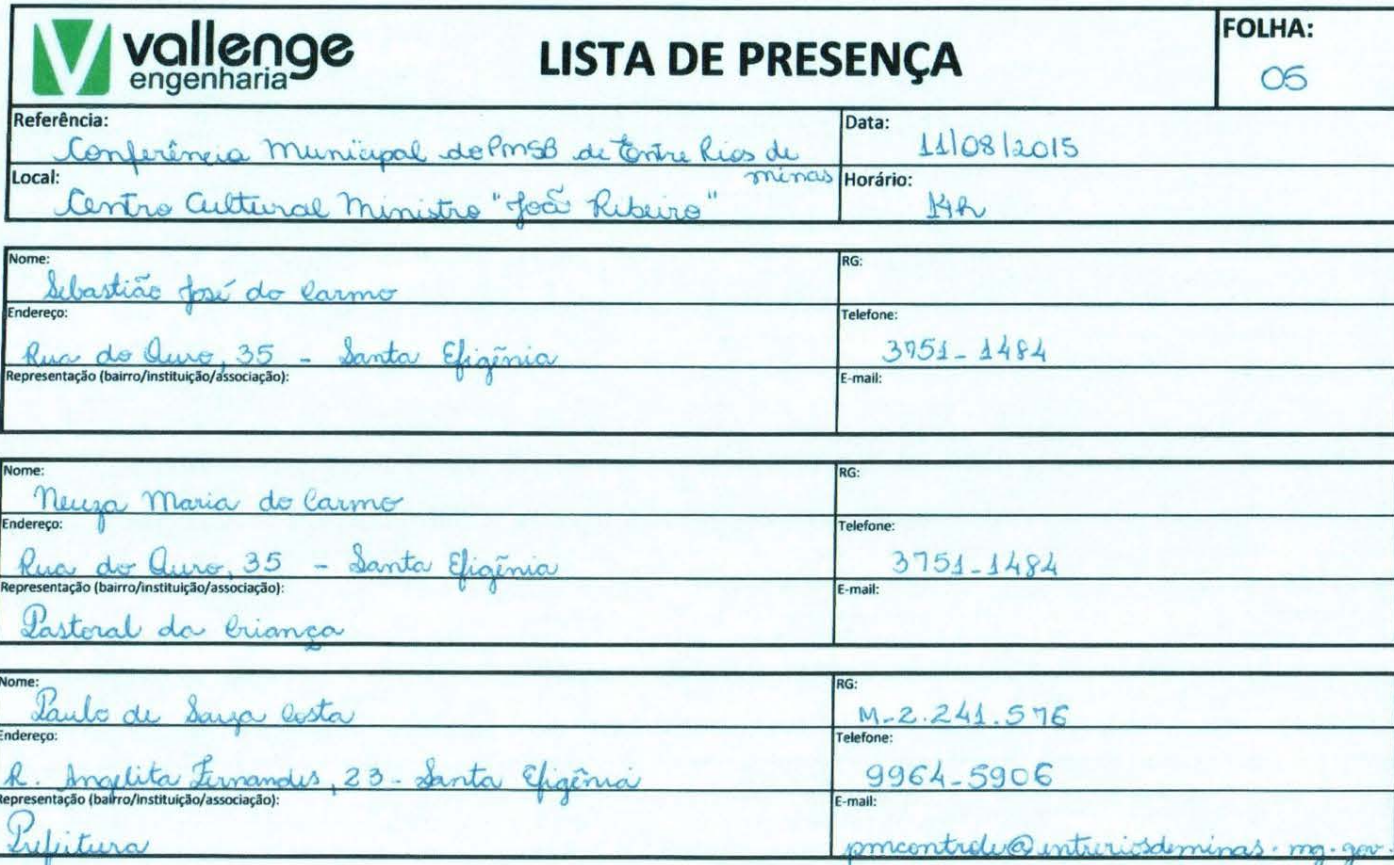 vallenge
engenharia
LISTA DE PRESENÇA
FOLHA:
05
Referência:
Conferência Municipal do PMSB de Entre Rios de
minas
Data:
11/08/2015
Local:
Centro Cultural Ministro "João Ribeiro"
Horário:
14h
Nome:
Sebastião José do Carmo
RG:
Endereço:
Rua do Ouro, 35 - Santa Efigênia
Telefone:
3751-1484
Representação (bairro/instituição/associação):
E-mail:
Nome:
Neuza Maria do Carmo
RG:
Endereço:
Rua do Ouro, 35 - Santa Efigênia
Telefone:
3751-1484
Representação (bairro/instituição/associação):
Pastoral da Criança
E-mail:
Nome:
Paulo de Souza Costa
RG:
M-2.241.576
Endereço:
R. Angelita Fernandes, 23 - Santa Efigênia
Telefone:
9964-5906
Representação (bairro/instituição/associação):
Prefeitura
E-mail:
pmcontrole@entreriosdeminas.mg.gov.